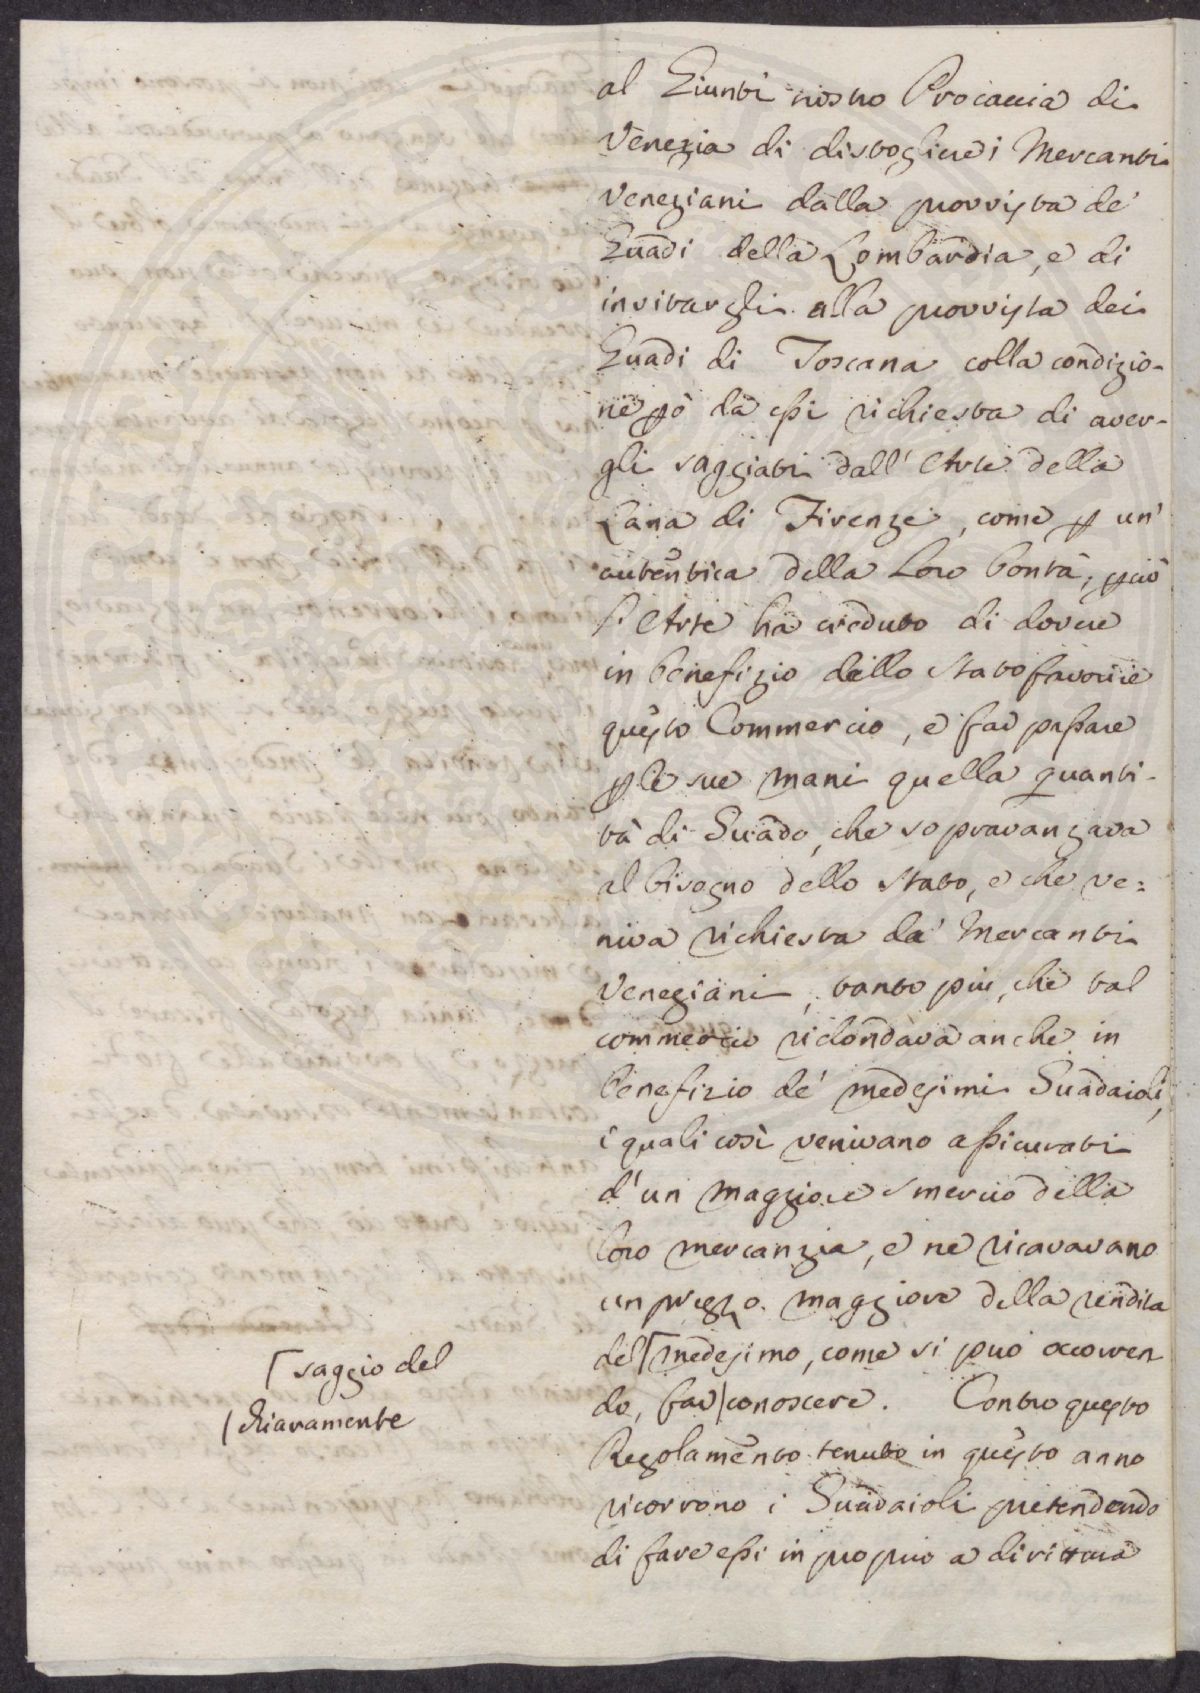 al Giunti nostro Procaccia di
Venezia di distogliere i Mercanti
Veneziani dalla provvista de'
Guadi della Lombardia, e di
invitargli alla provvista dei
Guadi di Toscana colla condizio-
ne pō da essi richiesta di aver-
gli saggiati dall' Arte della
Lana di Firenze, come p un'
autentica della Loro bontà, pciò
l'Arte ha creduto di dovere
in benefizio dello Stato favorire
questo Commercio, e far passare
p le sue mani quella quanti-
tà di Guado, che sopravanzava
al bisogno dello Stato, e che ve=
niva richiesta da' Mercanti
Veneziani, tanto più, che tal
commercio ridondava anche in
benefizio de' medesimi Guadaioli,
i quali così venivano assicurati
d'un maggiore smercio della
loro mercanzia, e ne ricavavano
un prezzo maggiore della vendita
del⌈medesimo, come si può occorren
do, far|conoscere. Contro questo
Regolamento tenuto in questo anno
ricorrono i Guadaioli pretendendo
di fare essi in proprio a dirittura
⌈saggio del
|chiaramente